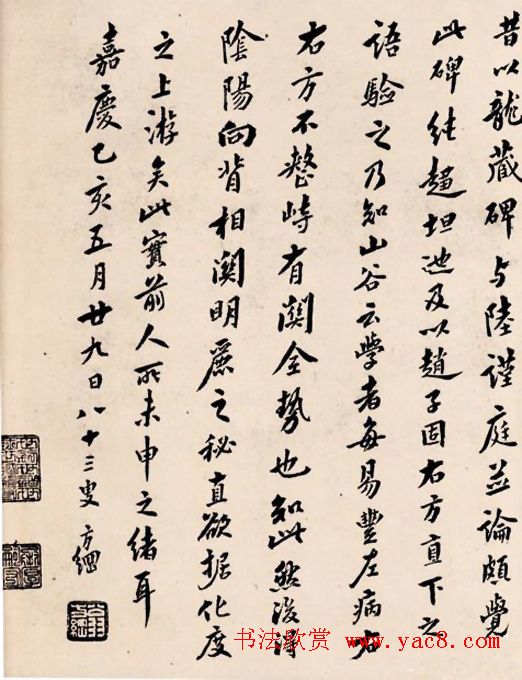 昔以龍藏碑與陸謹庭並論頗覺
此碑純趨坦迆及以趙子固右方直下之
語驗之乃知山谷云學者每易豐左病右
右方不整峙有關全勢也知此然後得
陰陽向背相關明麗之秘直欲据化度
之上游矣此實前人所未申之緒耳
嘉慶乙亥五月廿九日八十三叟方綱
书法欣赏 www.yac8.com